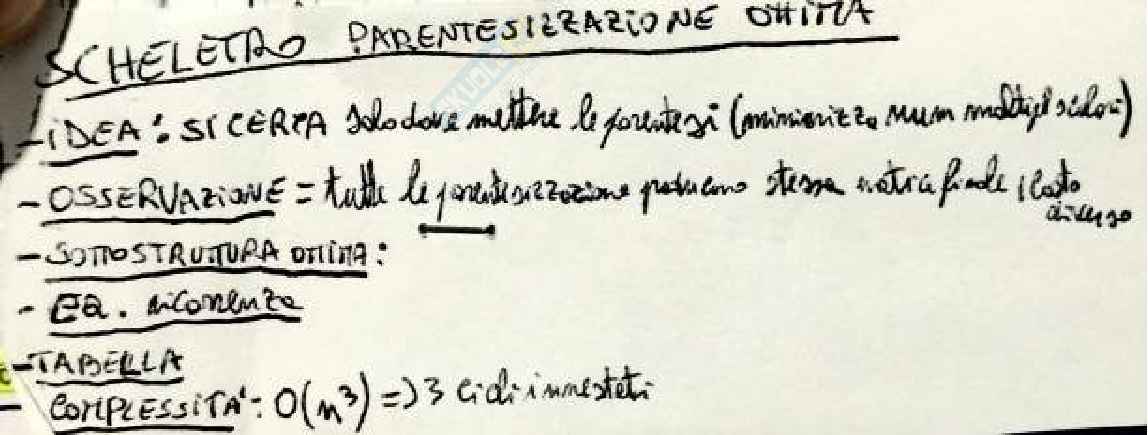 SCHELETRO PARENTESIZZAZIONE OTTIMA
- IDEA: SI CERCA solo dove mettere le parentesi (minimizza num moltipl scalari)
- OSSERVAZIONE = tutte le parentesizzazione producono stessa matrice finale, costo diverso
- SOTTOSTRUTTURA OTTIMA:
- EQ. ricorrenza
- TABELLA
- COMPLESSITA': O(n³) => 3 cicli innestati